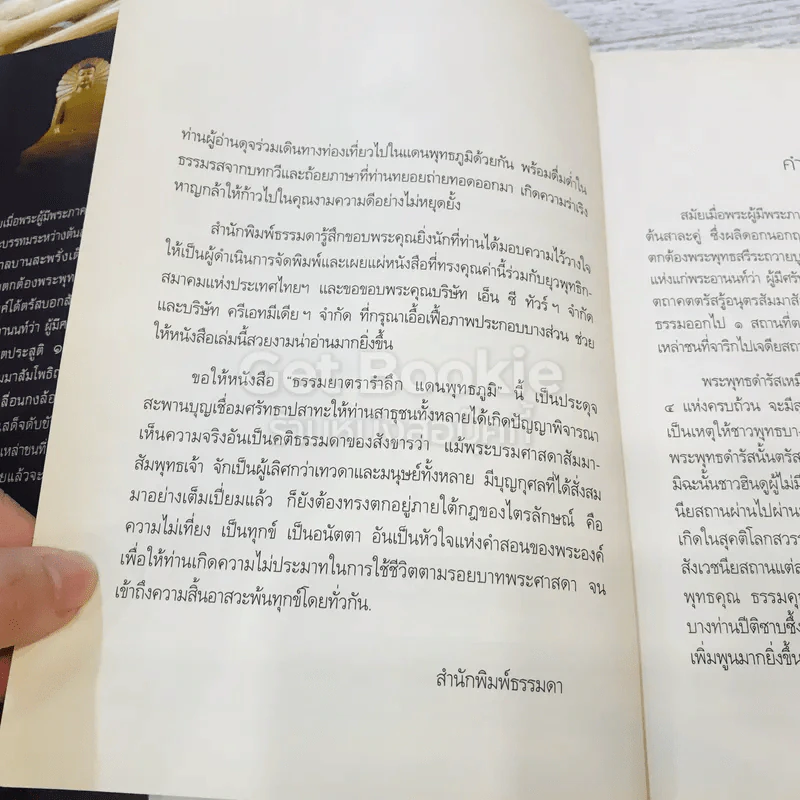 ท่านผู้อ่านดุจร่วมเดินทางท่องเที่ยวไปในแดนพุทธภูมิด้วยกัน พร้อมดื่มด่ำใน
ธรรมรสจากบทกวีและถ้อยภาษาที่ท่านทยอยถ่ายทอดออกมา เกิดความร่าเริง
หาญกล้าให้ก้าวไปในคุณงามความดีอย่างไม่หยุดยั้ง
สำนักพิมพ์ธรรมดารู้สึกขอบพระคุณยิ่งนักที่ท่านได้มอบความไว้วางใจ
ให้เป็นผู้ดำเนินการจัดพิมพ์และเผยแผ่หนังสือที่ทรงคุณค่านี้ร่วมกับยุวพุทธิก-
สมาคมแห่งประเทศไทยฯ และขอขอบพระคุณบริษัท เอ็น ซี ทัวร์ ฯ จำกัด
และบริษัท ครีเอทมีเดีย ฯ จำกัด ที่กรุณาเอื้อเฟื้อภาพประกอบบางส่วน ช่วย
ให้หนังสือเล่มนี้สวยงามน่าอ่านมากยิ่งขึ้น
ขอให้หนังสือ “ธรรมยาตรารำลึก แดนพุทธภูมิ” นี้ เป็นประดุจ
สะพานบุญเชื่อมศรัทธาปสาทะให้ท่านสาธุชนทั้งหลายได้เกิดปัญญาพิจารณา
เห็นความจริงอันเป็นคติธรรมดาของสังขารว่า แม้พระบรมศาสดาสัมมา-
สัมพุทธเจ้า จักเป็นผู้เลิศกว่าเทวดาและมนุษย์ทั้งหลาย มีบุญกุศลที่ได้สั่งสม
มาอย่างเต็มเปี่ยมแล้ว ก็ยังต้องทรงตกอยู่ภายใต้กฎของไตรลักษณ์ คือ
ความไม่เที่ยง เป็นทุกข์ เป็นอนัตตา อันเป็นหัวใจแห่งคำสอนของพระองค์
เพื่อให้ท่านเกิดความไม่ประมาทในการใช้ชีวิตตามรอยบาทพระศาสดา จน
เข้าถึงความสิ้นอาสวะพ้นทุกข์โดยทั่วกัน.
สำนักพิมพ์ธรรมดา
Get Bookie
สมัยเมื่อพระผู้มีพระภา
ต้นสาละคู่ ซึ่งผลิดอกนอกฤ
ตกต้องพระพุทธสรีระถวายบู
แห่งแก่พระอานนท์ว่า ผู้มีศรัท
ตถาคตตรัสรู้อนุตรสัมมาสั
ธรรมออกไป ๑ สถานที่ต
เหล่าชนที่จาริกไปเจดียสถา
พระพุทธดำรัสเหมื
๔ แห่งครบถ้วน จะมีส
เป็นเหตุให้ชาวพุทธบาง
พระพุทธดำรัสนั้นตรัส
มิฉะนั้นชาวฮินดูผู้ไม่มี
นียสถานผ่านไปผ่าน
เกิดในสุคติโลกสวรร
สังเวชนียสถานแต่ล
พุทธคุณ ธรรมคุ
บางท่านปีติซาบซึ้ง
เพิ่มพูนมากยิ่งขึ้น